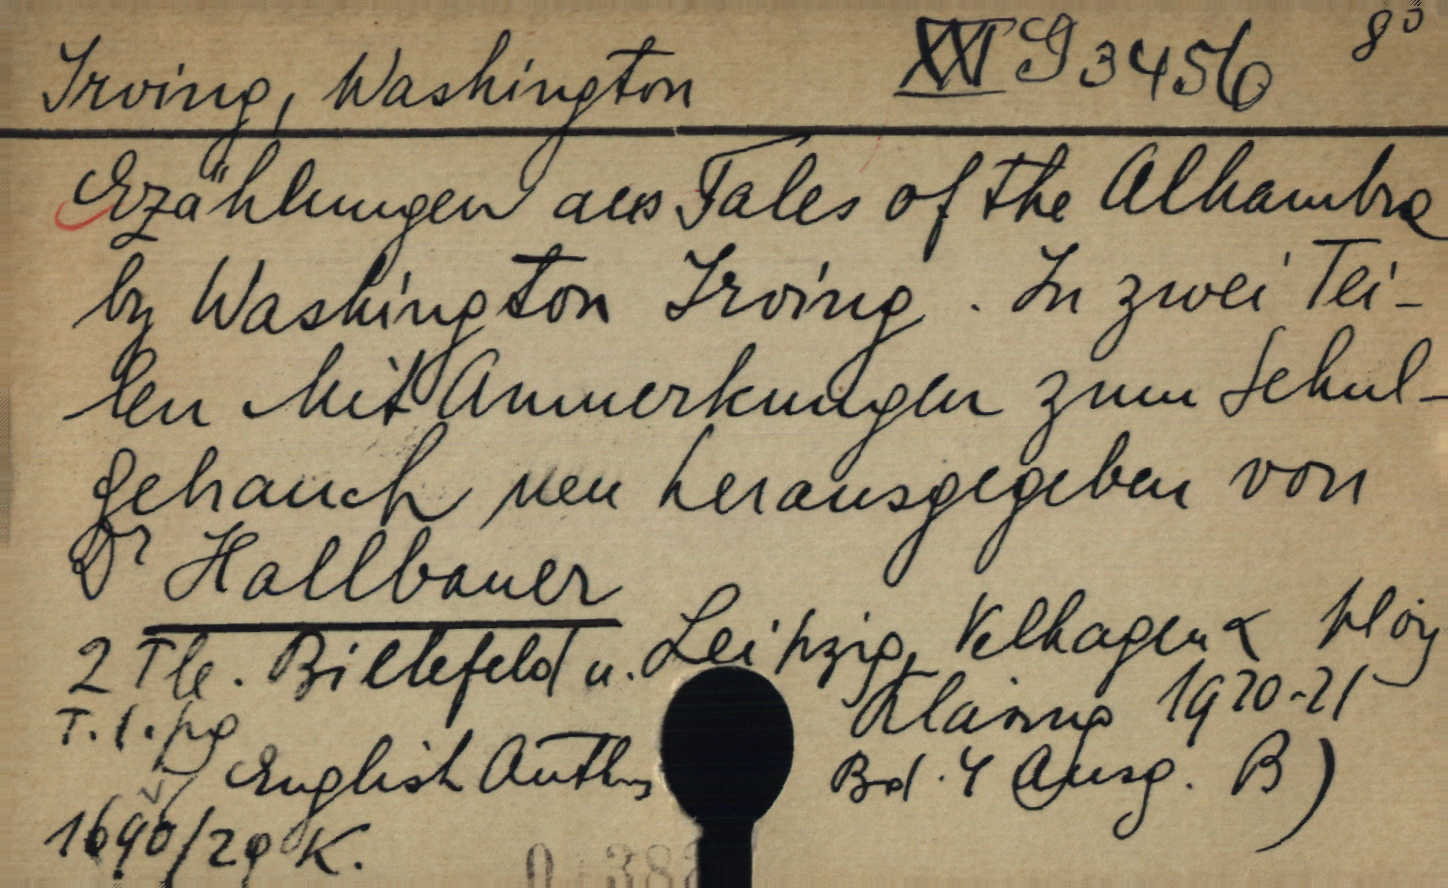 Irving, Washington XXI G 3456 8°
Erzählungen aus Tales of the Alhambra
by Washington Irving. In zwei Tei-
len Mit Anmerkungen zum Schul-
gebrauch neu herausgegeben von
Dr Hallbauer
2 Tle. Bielefeld u. Leipzig, Velhagen &
Klasing 1920-21
T. 1.
English Auth Bd. 4 Ausg. B)
1690/29 K.